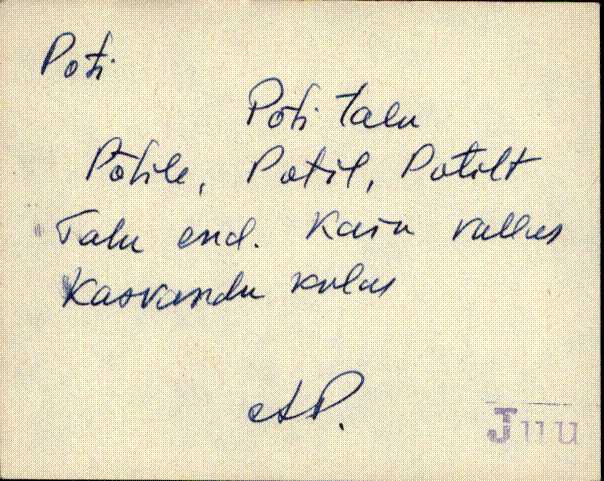 Poti
Poti talu
Potile, Potil, Potilt
Talu end. Kaiu vallas
Kasvandu külas
AP.
Juu